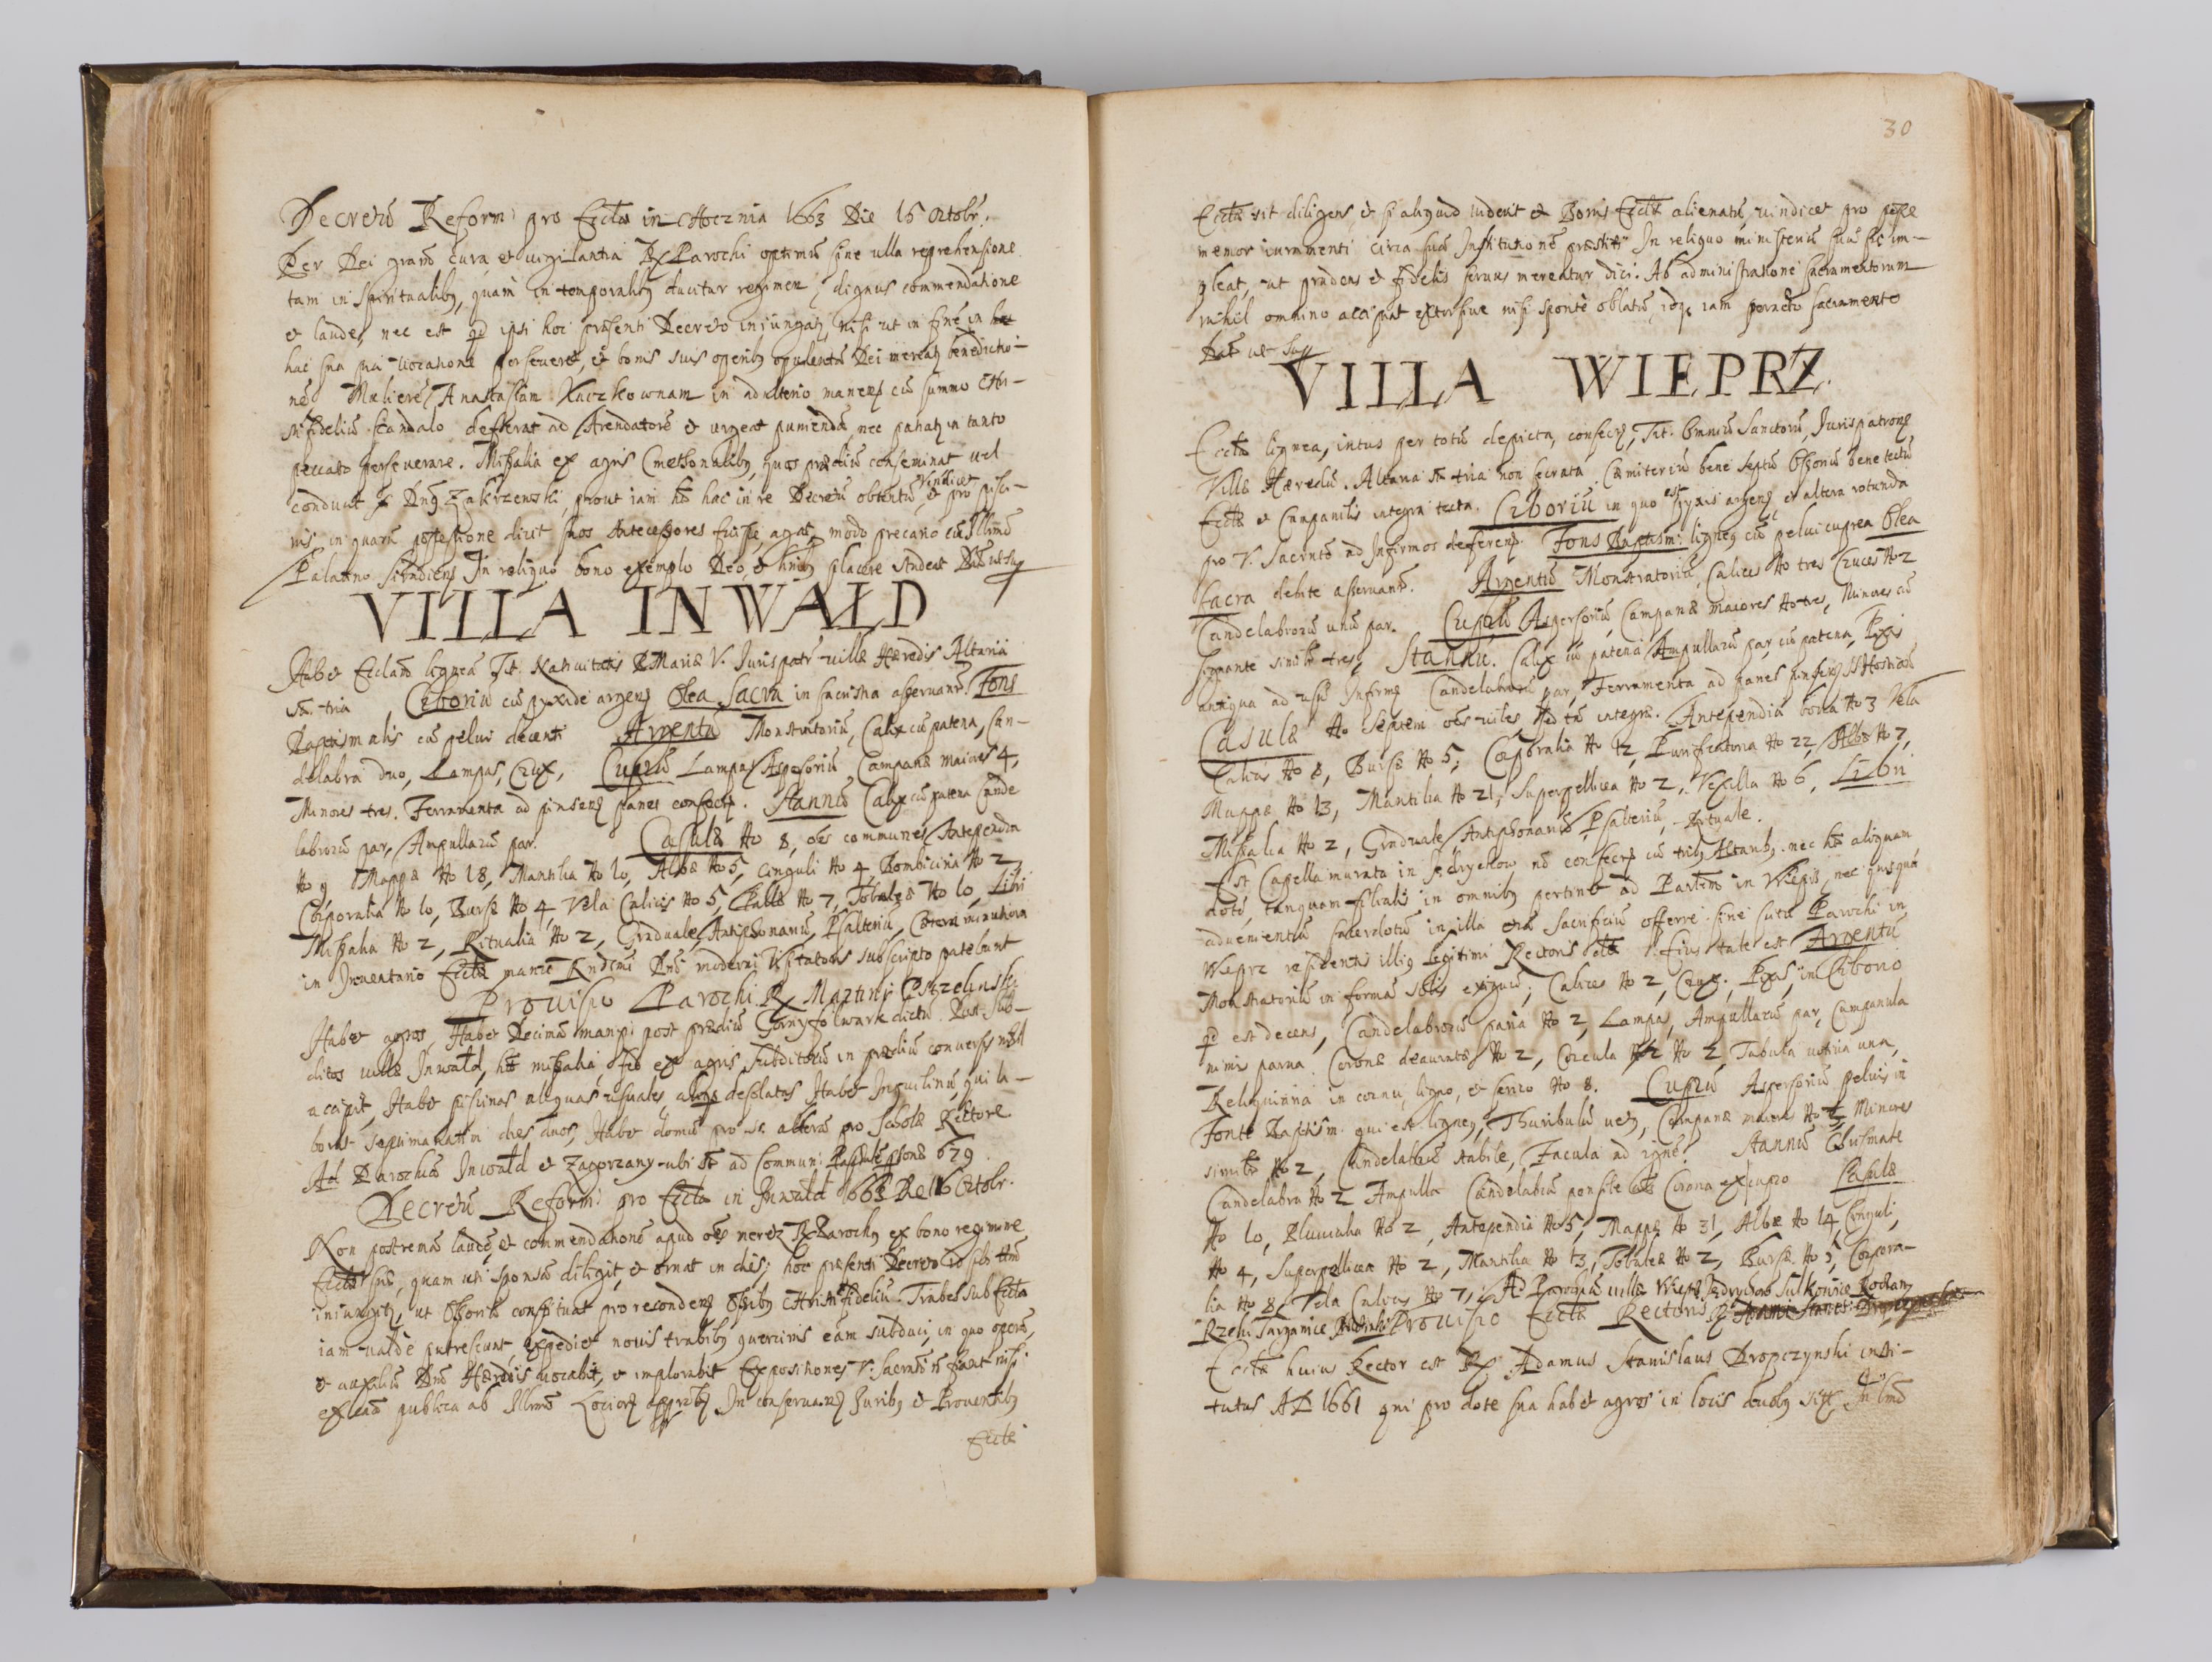 Decretũ Reform: pro Eccła in Chocznia 1663 Die 16 Octobr.
Per Dei gratiã cura et vigilantia R Parochi optimũ sine ulla reprehensione
tam in Spiritualibq, quam in temporalibq ducitur regimen, dignus commendatione
et laude, nec est qd ipsi hoc præsenti Decreto iniungatʒ, nisi ut in fine in
hac sua vocatione perseveret, et bonis suis operibq opulentã Dei mereatʒ benedictio-
nẽ Mulierẽ Anastasiam Kaczkownam in adulterio manenʒ cũ summo Chri-
stifideliũ scandalo defferat ad Arendatorẽ et urgeat puniendã nec patiatʒ in tanto
peccato perseverare. Missalia ex agris Cmethonalibq, quos prædiũ conseminat vel
conducit Dnq Zakrzewski, prout iam hac in re Decretũ obtentũ, Vindicet et pro pisci-
nis in quarũ possessione dicit suos Antecessores fuisse, agat, modo precario cũ Illmo
Palatino In reliquo bono exemplo Deo, et placere studeat Datũ ut sup
VILLA INWAŁD
Habet Ecclam ligneã Tit. Nativitatis B Mariæ V. Juris patr villæ Hæredis Altaria
st. tria Ciboriũ cũ pyxide argen Olea Sacra in sacristia asservant. Fons
Baptismalis cũ pelvi decenti Argentũ Monstratoriũ, Calix cũ patena, Can-
delabra duo, Lampas, Crux, Cuprũ Lampas Aspersoriũ Campanæ maiores 4,
Minores tres. Ferramenta ad pinsenʒ panes consecr. Stannũ Calix cũ patena Cande
labrorũ par, Ampullarũ par. Casulæ No 8, oẽs communes Antependia
No 9 Mappæ No 18, Mantilia No 10, Albæ No 5, Cinguli No 4 Bombicinia No 2
Corporalia No 10, Bursæ No 4, Vela Calicis No 5, Pallæ No 7, Tobaleæ No 10, Libri
Missalia No 2, Ritualia No 2, Graduale, Antiphonariũ, Psalteriũ, Cætera minutiora
in Inventario Ecclæ manu Rndmi Dni moderni Visitatoris subscripto patebunt
Provisio Parochi R Martini Pszczelinski
Habet agros, Habet Decimã manip: post prædiũ Gornyfolwark dictũ. Post Sub-
ditos villæ Inwałd, missalia sed ex agris subditorũ in prædiũ conversis nihil
accipit, Habet piscinas aliquas usuales, alias desolatas Habet Inquilinũ, qui la-
borat septimanatim dies duos, Habet domũ pro se alterã pro Scholæ Rectore
Ad Parochiã Inwałd et Zagorzany ubi st ad Communi: capabiles psonæ 629.
Decretũ Reform: pro Eccła in Inwałd 1663 Die 16 Octobr.
Non postremã laudẽ, et commendationẽ apud oẽs meretʒ R Parochq ex bono regimine
Ecclæ suæ, quam uti sponsã diligit, et ornat in dies; hoc præsenti Decreto id sibi tm
iniungitʒ, ut Ossoriũ constituat pro recondenʒ Ossibq Christifideliũ. Trabes sub Eccła
iam valde putrescunt expediet novis trabibq quercinis eam subduci, in quo operã,
et auxiliũ Dni Hæredis vocabit, et implorabit Expositiones V. Sacrãti ñ fiant nisi
ex causa publica ab Illmo Loci Ord approbʒ In conservanʒ Juribq et Proventibq
Ecclæ
30
Ecclæ sit diligens, et si aliquid viderit ex Bonis Ecclæ alienatũ, vindicet pro posse
memor iuramenti circa suã Institutionẽ præstiti. In reliquo ministeriũ suũ sic im-
pleat, ut prudens et fidelis servus mereatur dici. Ab administratione Sacramentorum
nihil omnino accipiat extorsive nisi sponte oblatũ, idqʒ iam peracto Sacramento
Dat ut sup
VILLA WIEPRZ.
Eccła lignea, intus per totũ depicta, consecrʒ, Tit. Omniũ Sanctorũ, Juris patronʒ
Villæ Hæredũ. Altaria st tria non secrata Cæmiteriũ bene septũ Ossoriũ bene tectũ
Eccła et Campanilis integra tecta. Ciboriũ in quo est pyxis argenʒ et altera rotunda
pro V. Sacrãto ad Infirmos deferenʒ. Fons Baptism: ligneq cũ pelvi cuprea Olea
Sacra debite asservant. Argentũ Monstratoriũ, Calices No tres Cruces No 2
Candelabrorũ unũ par. Cuprũ Aspersoriũ, Campanæ maiores No tres, Minores cũ
signante simili tres, Stannũ. Calix cũ patena Ampullarũ par, cũ patena, Pixis
antiqua ad usũ Infirmʒ Candelabrorũ par, Ferramenta ad panes pinsenʒ SS Hostiarũ
Casulæ No Septem oẽs viles sed tñ integræ. Antependia bona No 3 Vela
Calicis No 8, Bursæ No 5, Corporalia No 12, Purificatoria No 22, Albæ No 7,
Mappæ No 13, Mantilia No 21, Superpellicea No 2, Vexilla No 6, Libri
Missalia No 2, Graduale, Antiphonariũ, Psalteriũ, Rituale.
Est Capella murata in Jedrychow, nõ consecrʒ cũ tribq Altaribq. nec aliquam
dotẽ, tanquam filialis in omnibq pertinet ad Parochũ in Wieprz, nec quisquã
advenientiũ sacerdotũ in illa Sacrificiũ offerre sine scitu Parochi in
Wieprz residentis illiq legitimi Rectoris Ejus tale est Argentũ
Monstratoriũ in formã solis exiguũ, Calices No 2, Crux, Pixis, in Ciborio
qd est decens, Candelabrorũ paria No 2, Lampas, Ampullarũ par, Campanula
nimis parva. Coronæ deauratæ No 2, Corcula No 2, Tabula votiva una,
Reliquiaria in cornu, ligno, et serico No 8. Cuprũ Aspersoriũ pelvis in
Fonte Baptism: qui est ligneq, Thuribulũ vetʒ, Campanæ maiores No 2, Minores
similes No 2, Candelabrũ stabile, Facula ad ignẽ. Stannũ Chrismate
Candelabra No 2 Ampulla Candelabrũ pensile Corona ex cupro Casulæ
No 10, Pluvialia No 2, Antependia No 5, Mappæ No 31, Albæ No 14 Cinguli
No 4, Superpellicea No 2, Mantilia No 13, Tobaleæ No 2, Bursæ No 5, Corpora-
lia No 8, Vela Calicis No 7, Ad Parochiã villæ Wieprz, Jedrychow Sułkowice
Rzeki Targanice Provisio Ecclæ Rectoris R
Ecclæ huius Rector est R Adamus Stanislaus Dropczynski insti-
tutus AD 1661 qui pro dote sua habet agros in locis duobq